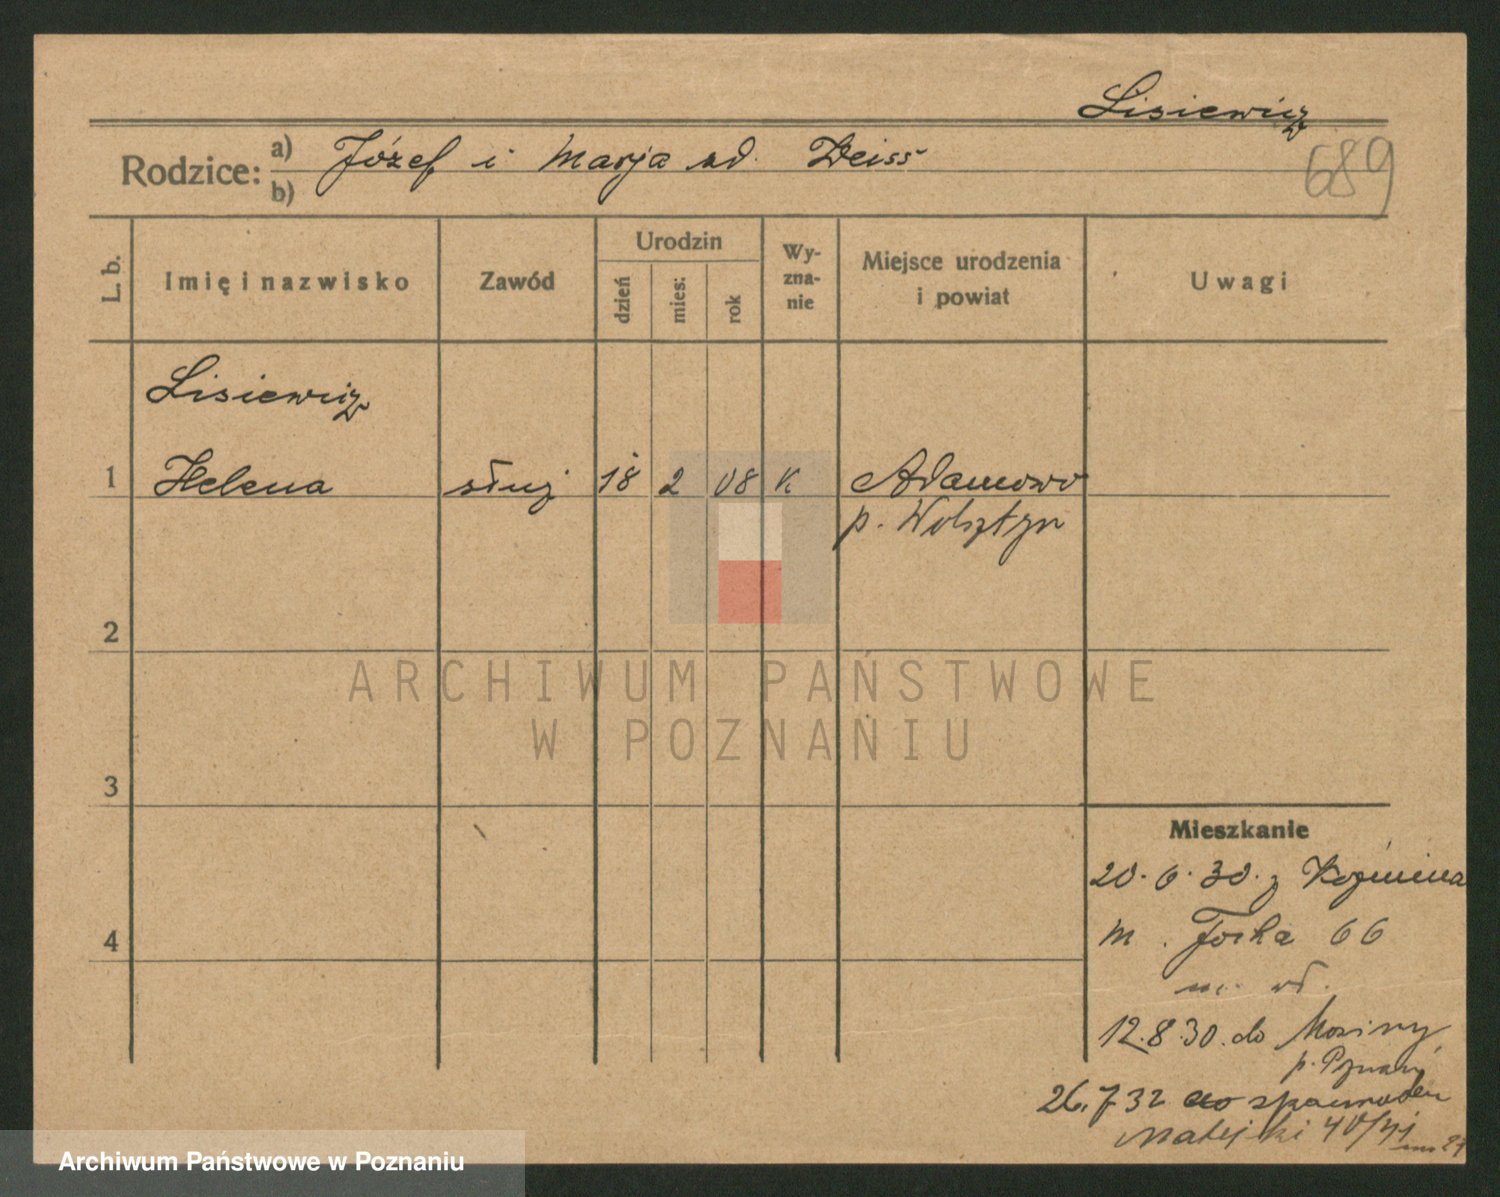 Lisiewicz
Rodzice: a) Józef i Marja zd. Deiss
b)
689
L. b.
Imię i nazwisko
Zawód
Urodzin
dzień
mies:
rok
Wy-
zna-
nie
Miejsce urodzenia
i powiat
Uwagi
Lisiewicz
1 Helena służ 18 2 08 k Adamowo
p. Wolsztyn
2
ARCHIWUM PAŃSTWOWE
W POZNANIU
3
Mieszkanie
20.6.30. z Koźmina
4
m. Focha 66
12.8.30. do Mosiny
p. Poznań
26.7 32
Matejki 40/41
Archiwum Państwowe w Poznaniu